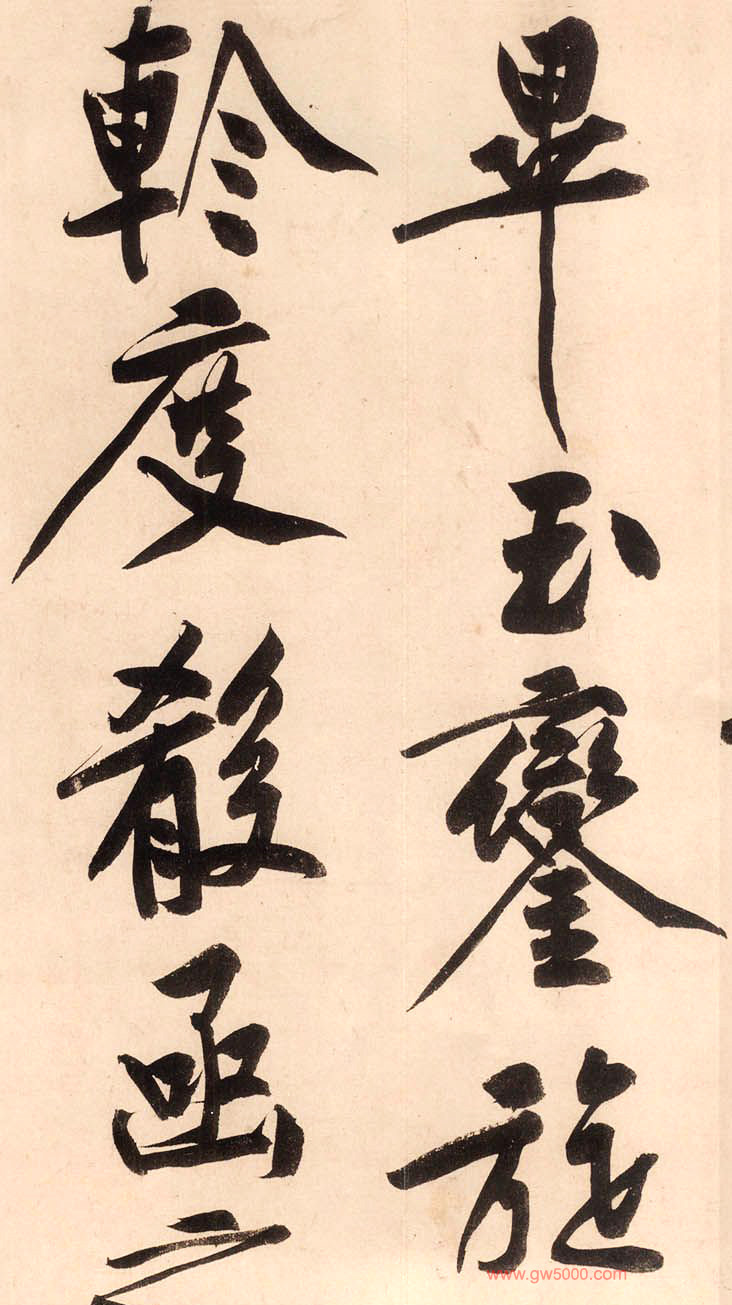 畢玉鑾旋
軫度殽函
www.gw5000.com